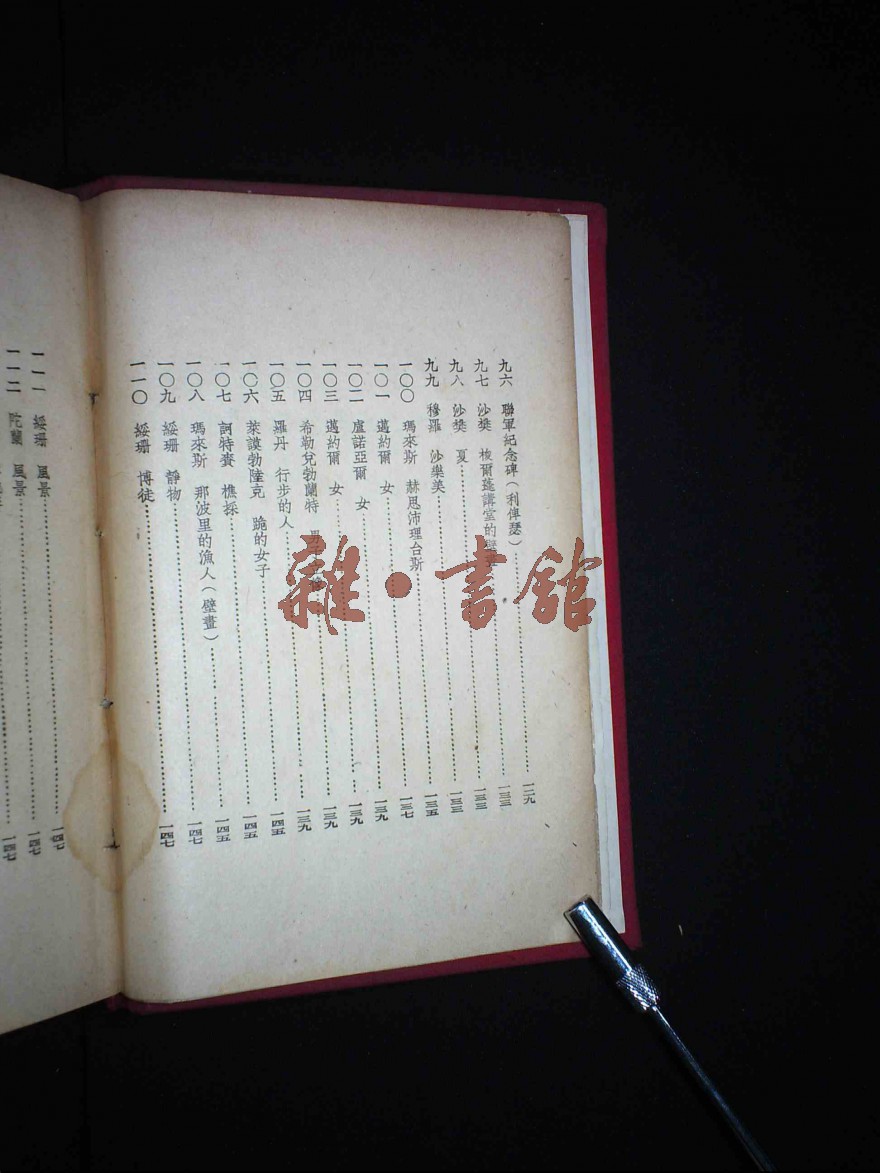 九六 聯軍紀念碑(利俾瑟)……一二九
九七 沙樊 梭爾蓬講堂的壁……一三三
九八 沙樊 夏……一三三
九九 穆羅 沙樂美……一三五
一〇〇 瑪來斯 赫思沛理台斯……一三七
一〇一 邁約爾 女……一三九
一〇二 盧諾亞爾 女……一三九
一〇三 邁約爾 女……一三九
一〇四 希勒兌勃蘭特 男子……一三九
一〇五 羅丹 行步的人……一四五
一〇六 萊謨勃陸克 跪的女子……一四五
一〇七 訶特賚 樵採……一四五
一〇八 瑪來斯 那波里的漁人(壁畫)……一四七
一〇九 綏珊 靜物……一四七
一一〇 綏珊 博徒……
一一一 綏珊 風景……一四七
一一二 陀蘭 風景……一四七
一四七
雜·書館